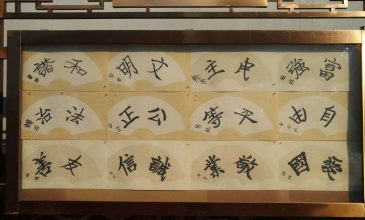 富強 民主 文明 和諧
自由 平等 公正 法治
愛國 敬業 誠信 友善